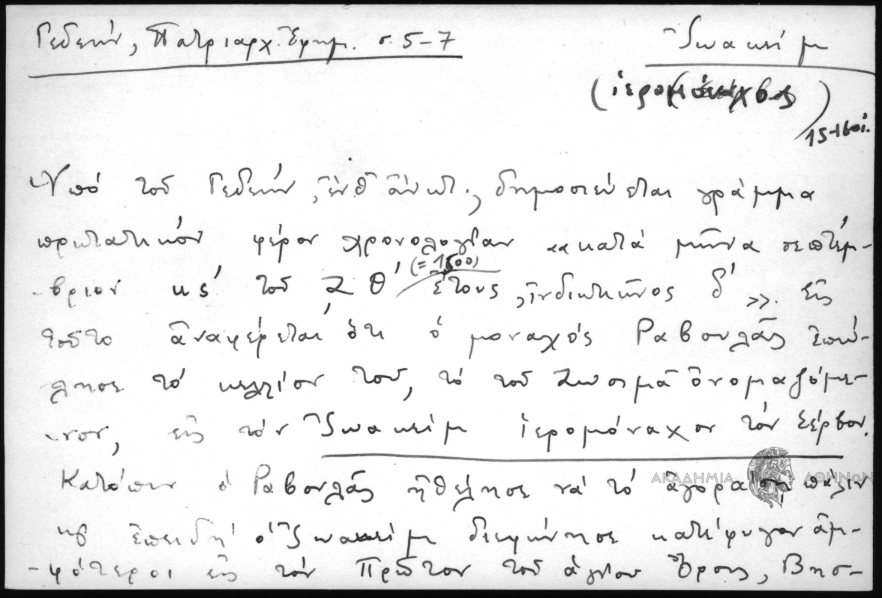 Γεδεών, Πατριαρχ. Ἐφημ. σ. 5-7
Ἰωακείμ
(ἱερομόναχος)
15-16 αἰ.
Ὑπό τοῦ Γεδεών, ἔνθ' ἀνωτ., δημοσιεύεται γράμμα
πρωτατικόν φέρον χρονολογίαν «κατά μῆνα σεπτέμ-
βριον κς' τοῦ ΖΘ' (=1500) ἔτους, ἰνδικτιῶνος δ'». Εἰς
τοῦτο ἀναφέρεται ὅτι ὁ μοναχός Ραβουλᾶς ἐπώ-
λησε τό κελλίον του, τό τοῦ Ζωσιμᾶ ὀνομαζόμε-
νον, εἰς τόν Ἰωακείμ ἱερομόναχον τόν Σέρβον.
Κατόπιν ὁ Ραβουλᾶς ἠθέλησε νά τό ἀγοράσῃ πάλιν
ΑΚΑΔΗΜΙΑ ΑΘΗΝΩΝ
κ' ἐπειδή ὁ Ἰωακείμ διεφώνησε κατέφυγον ἀμ-
φότεροι εἰς τόν Πρῶτον τοῦ ἁγίου Ὄρους, Βησ-